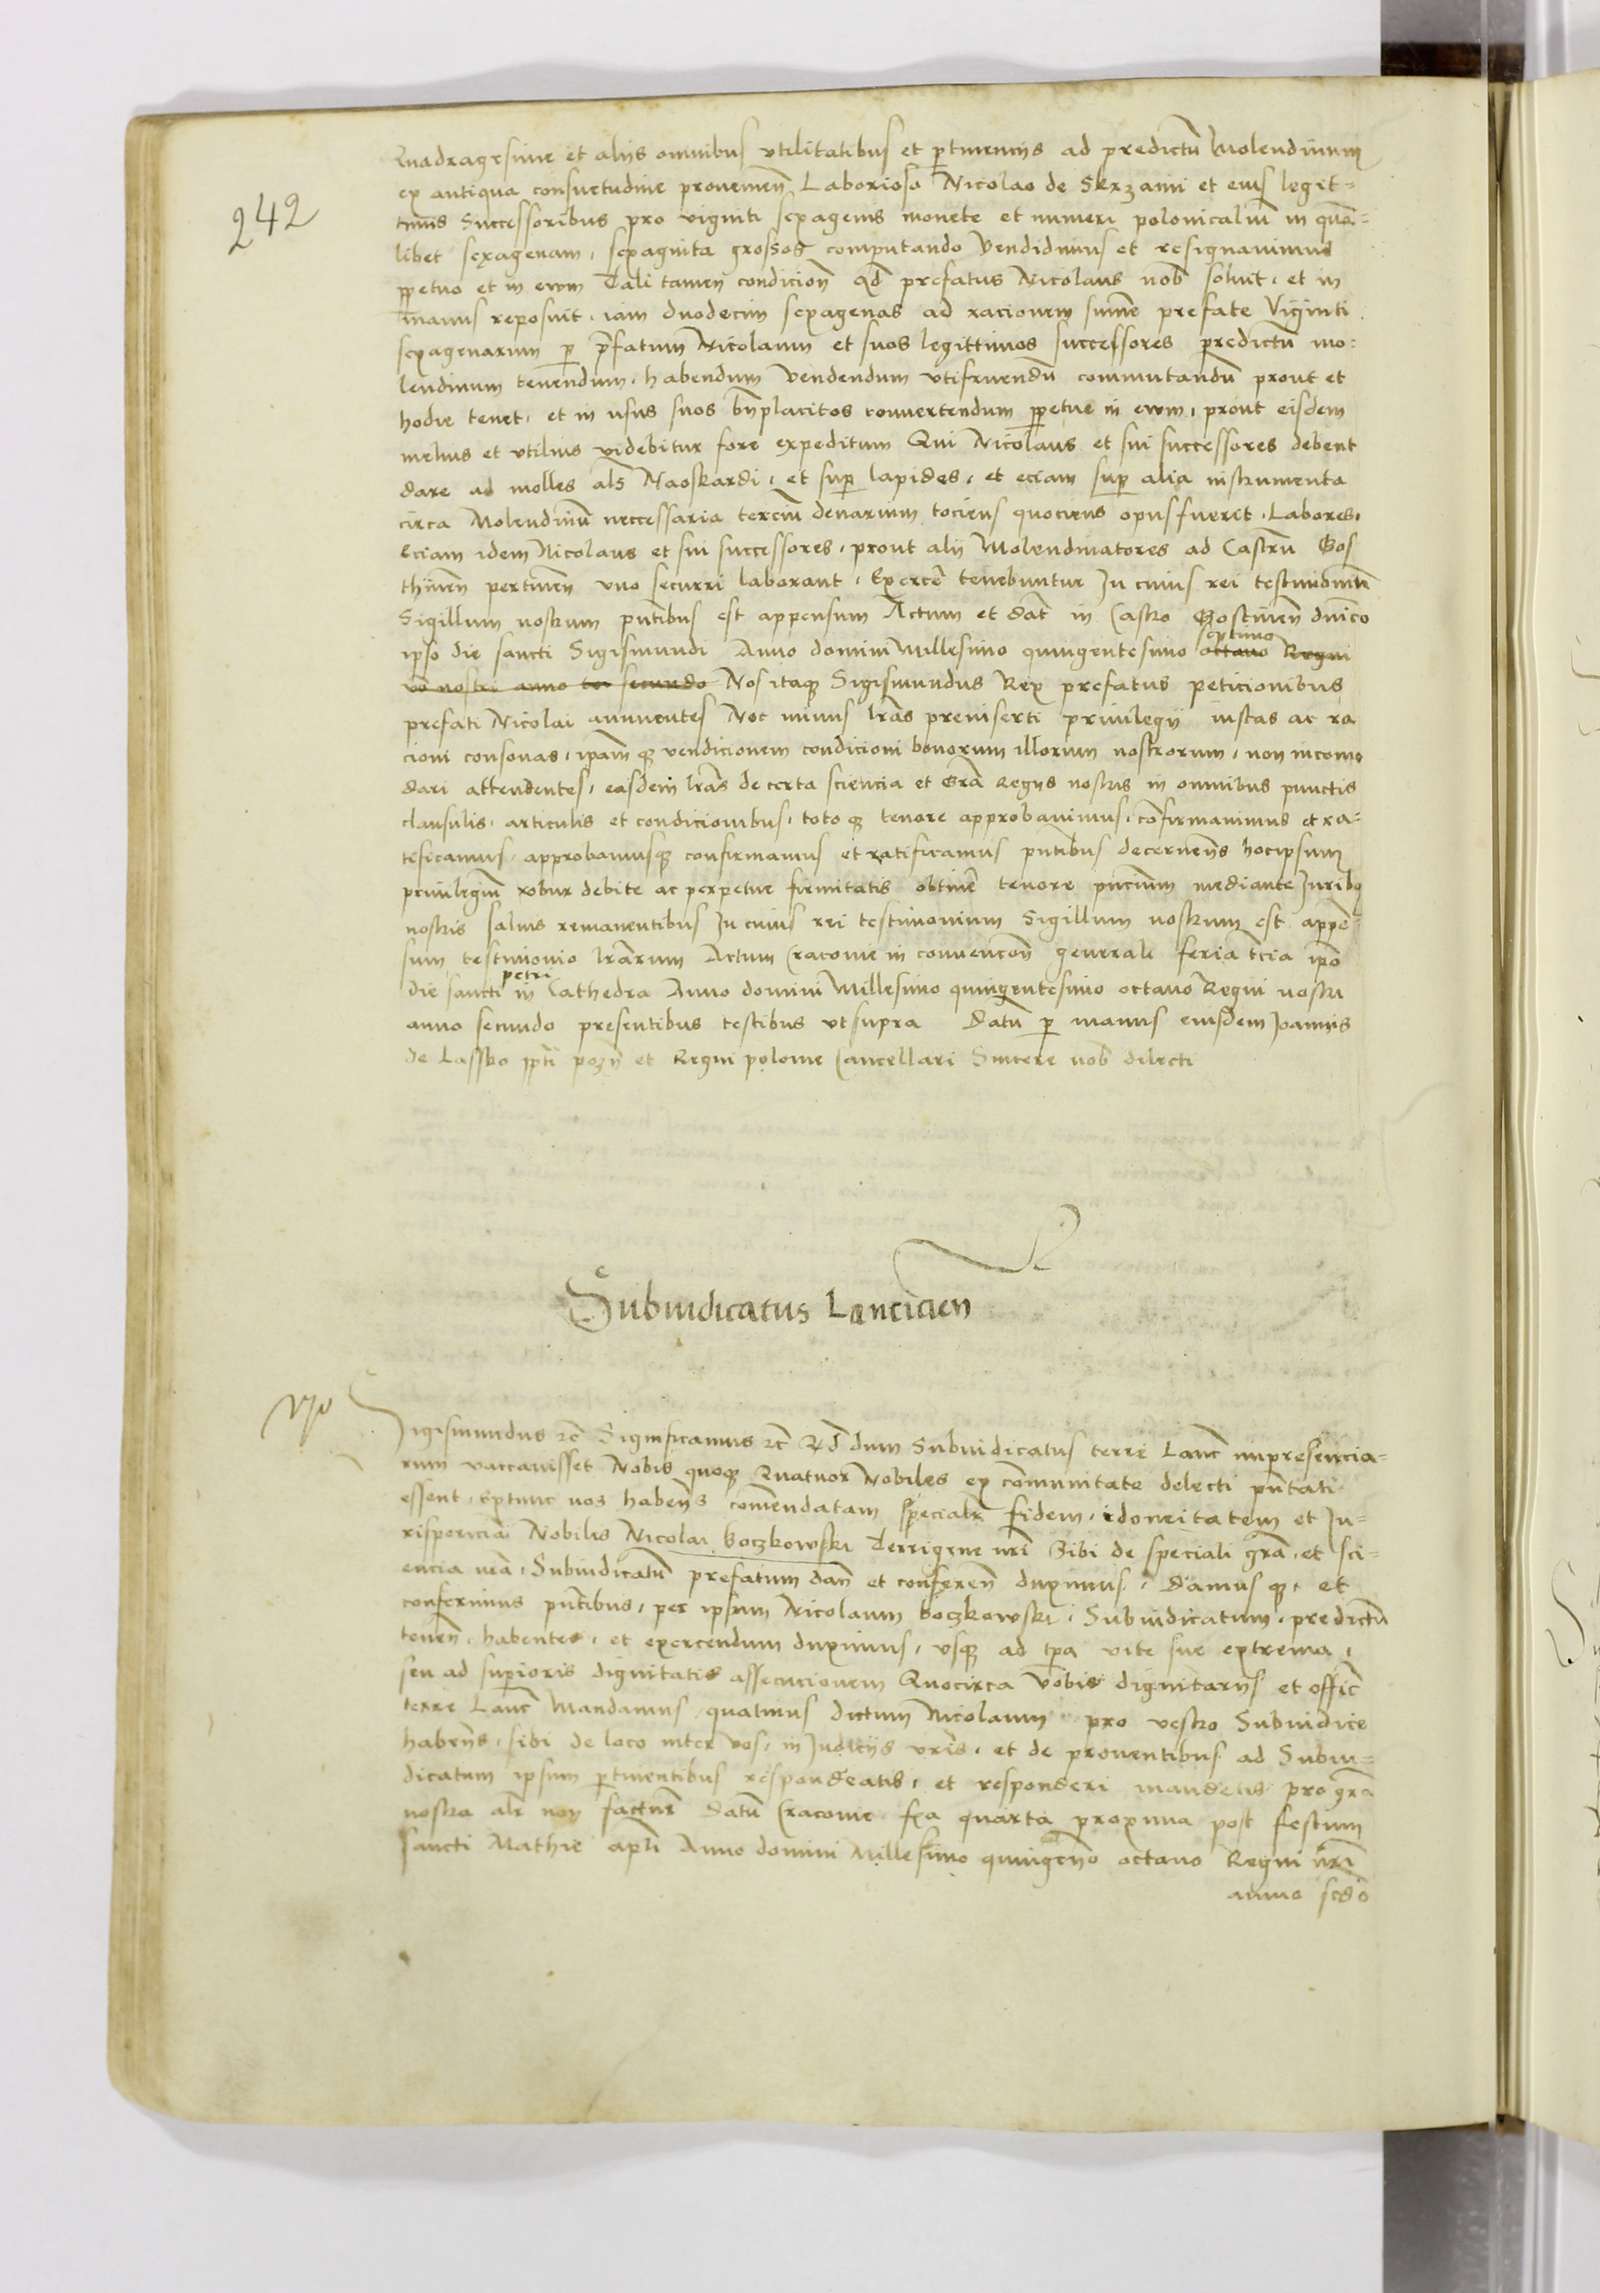 242
Quadragesime et aliis omnibus utilitatibus et ptinenciis ad predictu Molendinum
ex antiqua consuetudine provenien Laborioso Nicolao de Skrzani et eius legit-
timis Successoribus pro viginti sexagenis monete et numeri polonicaliu in qua-
libet sexagenam, sexaginta grossos computando Vendidimus et resignavimus
ppetuo et in evum Tali tamen condicion qd prefatus Nicolaus nob solvit, et in
manus reposuit, iam duodecim sexagenas ad racionem summe prefate Viginti
sexagenarum p prefatum Nicolaum et suos legittimos successores predictu mo-
lendinum tenendum, habendum vendendum utifruendu commutandu prout et
hodie tenet, et in usus suos bnplacitos convertendum ppetue in evum, prout eisdem
melius et utilius videbitur fore expeditum Qui Nicolaus et sui successores debent
dare ad molles als Naoskardi, et sup lapides, et eciam sup alia instrumenta
circa Molendinu neccessaria terciu denarium tociens quociens opus fuerit, Labores,
Eciam idem Nicolaus et sui successores, prout alii Molendinatores ad Castru Gos
thinen pertinen uno securri laborant, Exerce tenebuntur In cuius rei testimoniu
Sigillum nostrum pntibus est appensum Actum et dat in Castro Gostinen dnico
septimo
ipso die sancti Sigismundi Anno domini Millesimo quingentesimo ottavo Regni
vo nostri anno secundo Nos itaq Sigismundus Rex prefatus peticionibus
prefati Nicolai annuentes Nec minus lras preinserti privilegii iustas ac ra
cioni consonas, ipamq vendicionem condicioni bonorum illorum nostrorum, non incomo
dari attendentes, easdem lras de certa sciencia et Gra Regiis nostris in omnibus punctis
clausulis, articulis et condicionibus, totoq tenore approbavimus, confirmavimus et ra-
tificamus, approbamusq confirmamus et ratificamus pntibus decernens hocipsum
privilegiu robur debite ac perpetue firmitatis obtine tenore pncium mediante Juribq
nostris salvis remanentibus In cuius rei testimonium Sigillum nostrum est appe-
sum testimonio lrarum Actum Cracovie in convencon generali feria tcia ipo
petri
die sancti in Cathedra Anno domini Millesimo quingentesimo octavo Regni nostri
anno secundo presentibus testibus ut supra Datu p manus eiusdem Joannis
de Lassko ppti pozn et Regni polonie Cancellari Sincere nob dilecti
Subiudicatus Lancicien
Sigismundus etc Significamus etc Qd dum Subiudicatus terre Lanc inpresencia-
rum vaccavisset Nobis quoq Quatuor Nobiles ex comunitate delecti pntati
essent, Extunc nos habens comendatam specialr fidem, idoneitatem et Ju-
risperician Nobilis Nicolai Boczkowski Terrigene nri Sibi de speciali gra, et sci-
encia nra, Subiudicatu prefatum dan et conferen duximus, damusq, et
conferimus pntibus, per ipsum Nicolaum Boczkowski, Subiudicatum, predictu
tenen, habentes, et exercendum duximus, usq ad tpa vite sue extrema,
seu ad supioris dignitatis assecucionem Quocirca Vobis dignitariis et offic
terre Lanc Mandamus, quatinus dictum Nicolaum pro vestro Subiudice
habens, sibi de loco inter vos, in Judiciis vris, et de proventibus ad Subiu-
dicatum ipsum ptinentibus respondeatis, et responderi mandetis pro gra
nostra alr non factur Datu Cracovie fra quarta proxima post festum
sancti Mathie apli Anno domini Millesimo quingenmo octavo Regni nri
anno scdo